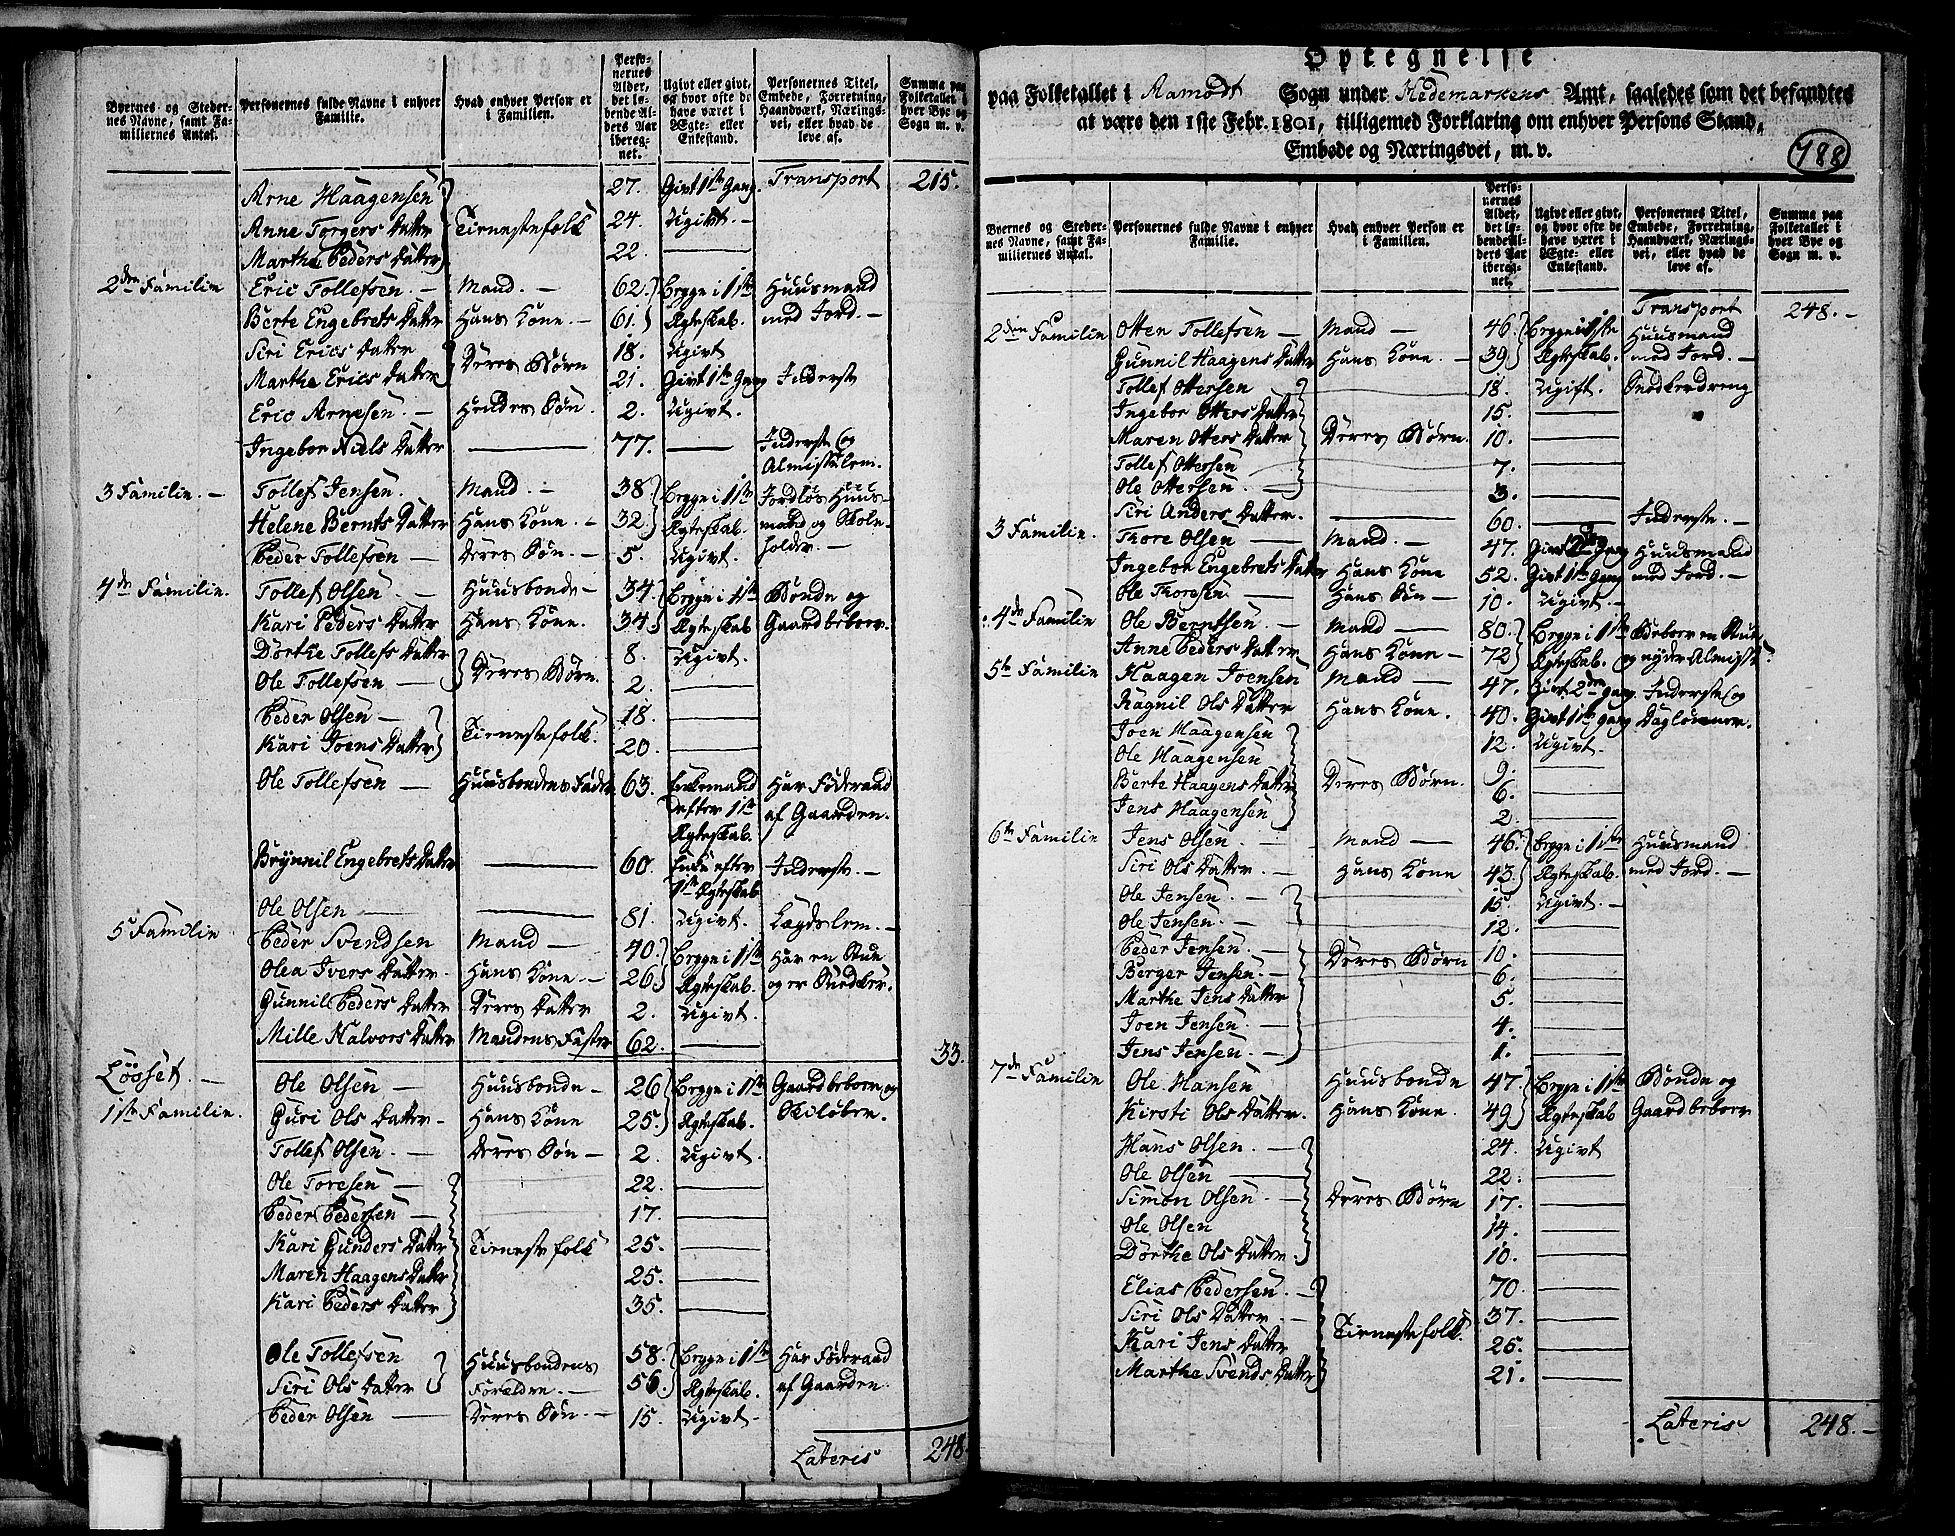 Byernes og Steder-
nes Navne, samt Fa-
miliernes Antal.
Personernes fulde Navne i enhver
Familie.
Hvad enhver Person er
i Familien.
Perso-
nernes
Alder,
det lø-
bende Al-
ders Aar
ibereg-
net.
Ugivt eller givt,
og hvor ofte de
have været i
Ægte- eller
Enkestand.
Personernes Titel,
Embede, Forretning,
Haandværk, Nærings-
vei, eller hvad de
leve af.
Summa paa
Folketallet i
hver Bye og
Sogn m. v.
Arne Haagensen 27. Givt 1ste Gang. Transport 215.
Anne Torgers Datter Tieneste folk 24. Ugivt. —
Marthe Peders Datter 22. —
2den Familie Eric Tollefsen. — Mand. — 62. Begge i 1ste Huusmand
Berte Engebrets Datter Hans Kone. — 61. Ægteskab. med Jord. —
Siri Erics Datter Deres Børn 18. Ugivt
Marthe Erics Datter 21. Givt 1ste Gang Inderste
Eric Arnesen. — Hendes Søn. 2. Ugivt.
Ingebor Niels Datter — 77. — Inderste og
Almisselem.
3 Familie. — Tollef Jensen. Mand. — 38 Begge i 1ste Jordløs Huus-
Helene Bernts Datter Hans Kone. — 32. Ægteskab. mand og Skole-
Peder Tollefsen — Deres Søn — 5. Ugivt. holder. —
4de Familie. Tollef Olsen — Huusbonde — 34. Begge i 1ste Bonde og
Kari Peders Datter Hans Kone. 34. Ægteskab Gaardbeboer.
Dorthe Tollefs Datter Deres Børn. 8. Ugivt.
Ole Tollefsen — 2. —
Peder Olsen — Tieneste folk. 18. —
Kari Joens Datter 20. —
Ole Tollefsen — Huusbondens Fader 63. Enkemand Har Føderaad
efter 1ste af Gaarden.
Ægteskab.
Brynnil Engebrets Datter — 60. Enke efter Inderste. —
1ste Ægteskab.
Ole Olsen — 81. Ugivt. Lægdslem. —
5 Familie Peder Svendsen Mand — 40. Begge i 1ste Har en Stue
Olea Ivers Datter. Hans Kone — 26. Ægteskab. og er Snedker.
Gunnil Peders Datter Deres Datter 2. Ugivt.
Mille Halvors Datter Mandens Faster 62. — 33.
Löset. —
1ste Familie. Ole Olsen — Huusbonde — 26 Begge i 1ste Gaardbeboer og
Guri Ols Datter — Hans Kone 25. Ægteskab. Skiløber. —
Tollef Olsen. — Deres Søn — 2. Ugivt.
Ole Toresen — 22. —
Peder Pedersen — 17. —
Kari Gunders Datter Tieneste folk 25. —
Maren Haagens Datter 25. —
Kari Peders Datter 35. —
Ole Tollefsen Huusbondens 58. Begge i 1ste Har Føderaad
Siri Ols Datter Forældre. — 56. Ægteskab. af Gaarden.
Peder Olsen — Deres Søn. — 15. Ugivt —
Lateris 248.
Optegnelse
paa Folketallet i Aamodt Sogn under Hedemarkens Amt, saaledes som det befandtes
at være den 1ste Febr. 1801, tilligemed Forklaring om enhver Persons Stand,
Embede og Næringsvei, m. v.
788
Byernes og Steder-
nes Navne, samt Fa-
miliernes Antal.
Personernes fulde Navne i enhver
Familie.
Hvad enhver Person er
i Familien.
Perso-
nernes
Alder,
det lø-
bende Al-
ders Aar
ibereg-
net.
Ugivt eller givt,
og hvor ofte de
have været i
Ægte- eller
Enkestand.
Personernes Titel,
Embede, Forretning,
Haandværk, Nærings-
vei, eller hvad de
leve af.
Summa paa
Folketallet i
hver Bye og
Sogn m. v.
Transport 248. —
2den Familie Otter Tollefsen — Mand — 46. Begge i 1ste Huusmand
Gunnil Haagens Datter Hans Kone. — 39 Ægteskab. med Jord. —
Tollef Ottersen — 18. Ugift. Snedkerdreng
Ingebor Otters Datter 15. —
Maren Otters Datter Deres Børn. 10. —
Tollef Ottersen 7. —
Ole Ottersen. — 3. —
Siri Anders Datter. — 60. — Inderste. —
3 Familie. Thore Olsen — Mand. — 47. Givt 2den Gang Huusmand
Ingebor Engebrets Datter Hans Kone 52. Givt 1ste Gang med Jord. —
Ole Thoresen. — Hans Søn — 10. Ugivt. —
4de Familie Ole Berntsen. — Mand — 80. Begge i 1ste Beboer en Stue
Anne Peders Datter Hans Kone — 72 Ægteskab. og nyder Almisse.
5te Familie Haagen Joensen Mand — 47. Givt 2den Gang. Inderste og
Ragnil Ols Datter Hans Kone. 40. Givt 1ste Gang Dagløenner.
Joen Haagensen 12. Ugivt. —
Ole Haagensen 9. —
Berte Haagens Datter Deres Børn. 6. —
Jens Haagensen 2. —
6te Familie Jens Olsen. — Mand — 46. Begge i 1ste Huusmand
Siri Ols Datter. — Hans Kone 43. Ægteskab. med Jord. —
Ole Jensen. — 15. Ugivt. —
Ole Jensen. — 12. —
Peder Jensen. — Deres Børn 10. —
Berger Jensen. — 6. —
Marthe Jens Datter 5. —
Joen Jensen. — 4. —
Jens Jensen. — 1. —
7de Familie Ole Hansen Huusbonde 47. Begge i 1ste Bonde og
Kirsti Ols Datter. Hans Kone. 49 Ægteskab Gaardbeboer
Hans Olsen. — 24. Ugivt
Ole Olsen — 22. —
Simon Olsen. — Deres Børn 17. —
Ole Olsen 14. —
Dorthe Ols Datter. 10. —
Elias Pedersen. — 70 —
Siri Ols Datter. — Tieneste folk. 37. —
Kari Jens Datter 26. —
Marthe Svends Datter 21. —
Lateris 248. —